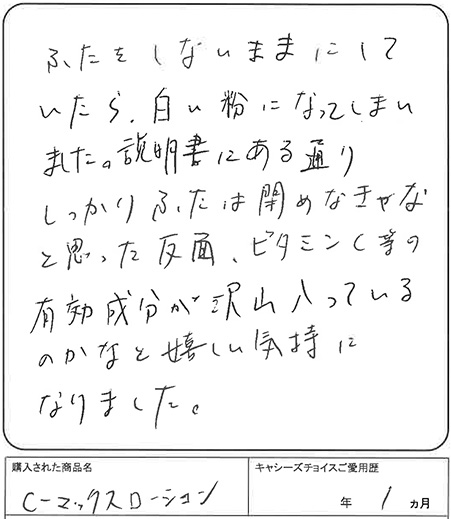 ふたをしないままにして
いたら、白い粉になってしまい
ました。説明書にある通り
しっかりふたは閉めなきゃな
と思った反面、ビタミンC等の
有効成分が沢山入っている
のかなと嬉しい気持に
なりました。
購入された商品名
キャシーズチョイスご愛用歴
C-マックスローション
年 1 ヵ月